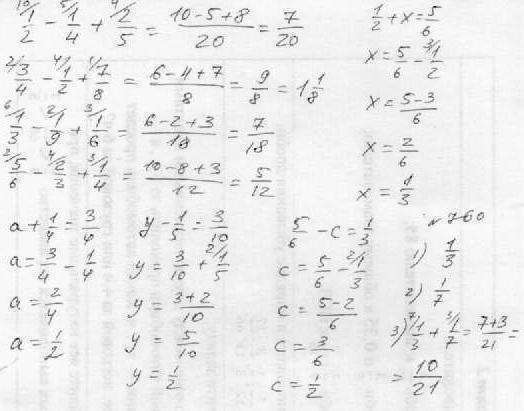 10/1/2 - 5/1/4 + 4/2/5 = (10-5+8)/20 = 7/20
2/3/4 - 4/1/2 + 1/7/8 = (6-4+7)/8 = 9/8 = 1 1/8
6/1/3 - 2/1/9 + 3/1/6 = (6-2+3)/18 = 7/18
2/5/6 - 4/2/3 + 3/1/4 = (10-8+3)/12 = 5/12
1/2 + x = 5/6
x = 5/6 - 3/1/2
x = (5-3)/6
x = 2/6
x = 1/3
a + 1/4 = 3/4
a = 3/4 - 1/4
a = 2/4
a = 1/2
y - 1/5 = 3/10
y = 3/10 + 2/1/5
y = (3+2)/10
y = 5/10
y = 1/2
5/6 - c = 1/3
c = 5/6 - 2/1/3
c = (5-2)/6
c = 3/6
c = 1/2
№ 760
1) 1/3
2) 1/7
3) 7/1/3 + 3/1/7 = (7+3)/21 =
= 10/21